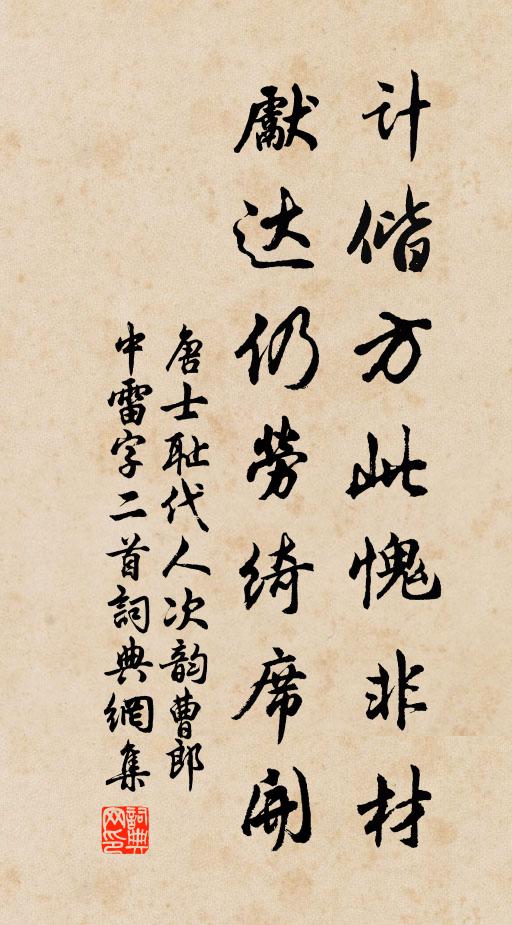 计偕方此愧非材
献达仍劳绮席开
唐士耻代人次韵曹郎
中雷字二首词典網集
詞典网印